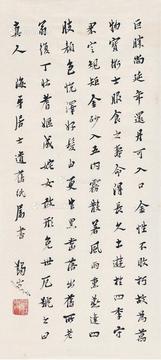 巨勝尚延年還丹可入口金性不敗朽故為萬
物寶術士服食之壽命得長久土遊於四季守
界定規矩金砂入五內霧散若風雨熏蒸達四
肢顏色悅澤好髮白更生黑齒落出舊所老
翁復丁壯耆嫗成姹女改形免世厄號之曰
真人 居士道舊 屬書